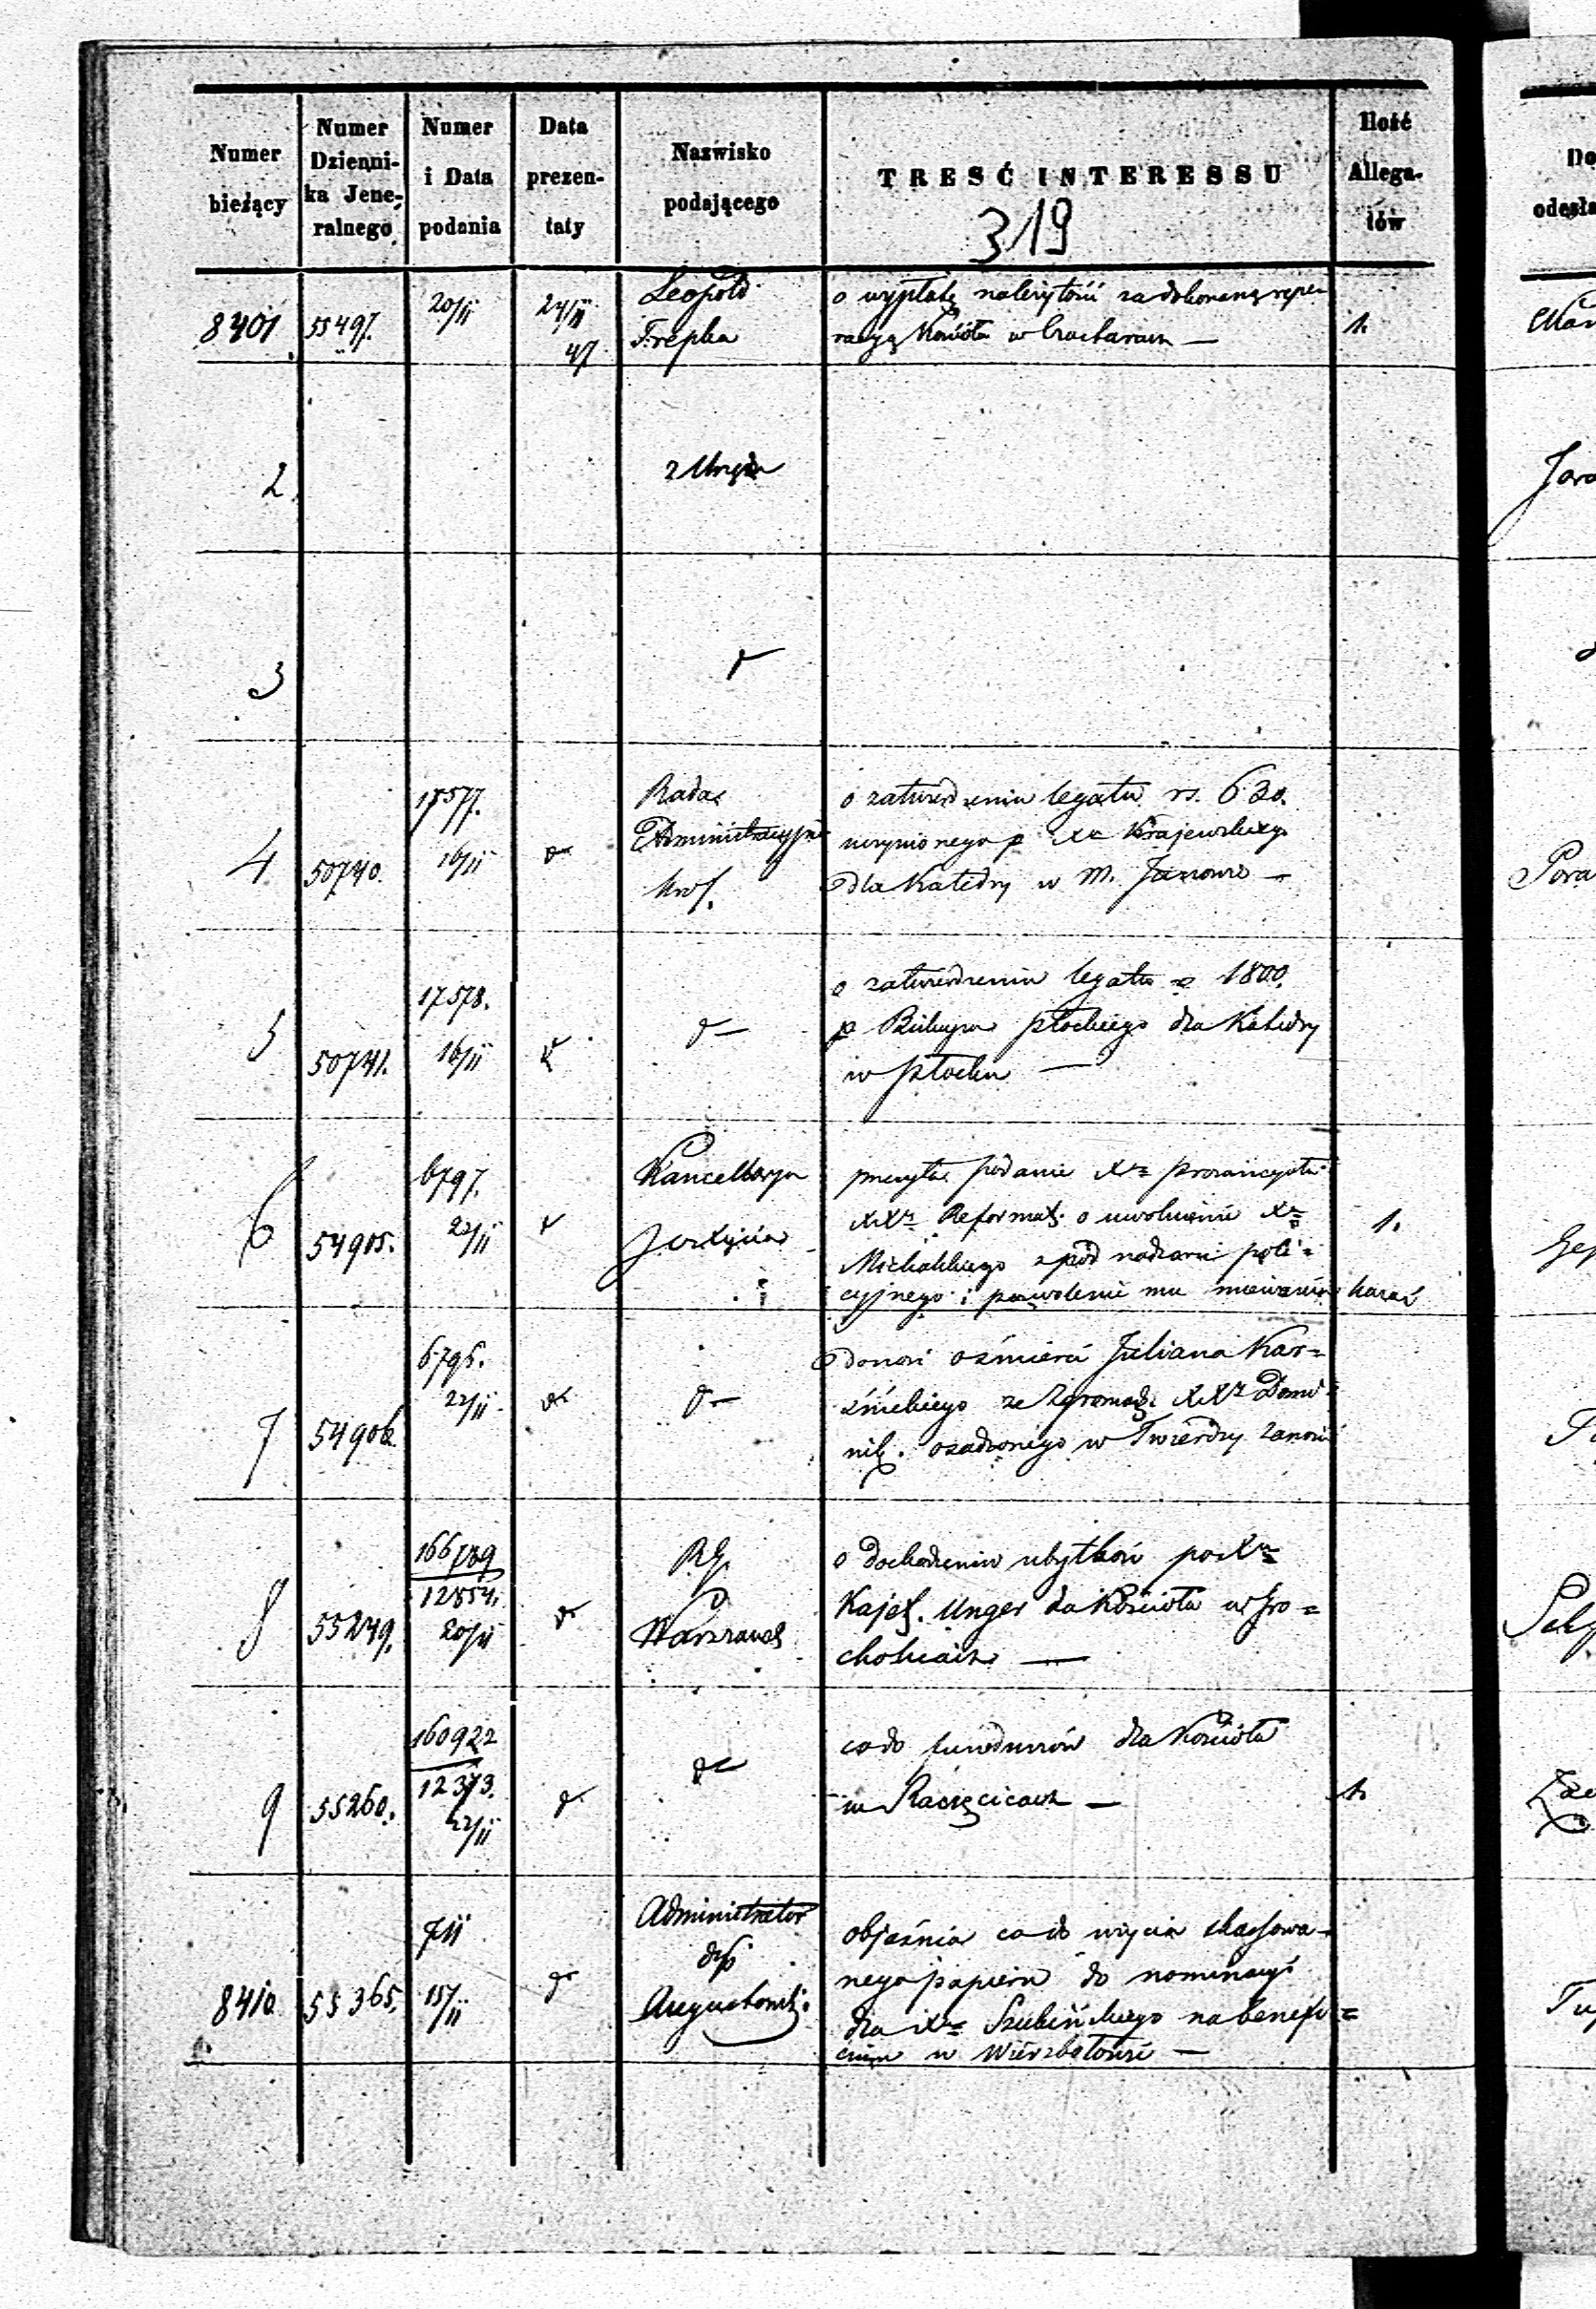 Numer bieżący
Numer Dzienni-
ka Jene-
ralnego
Numer
i Data
podania
Data
prezen-
taty
Nazwisko
podającego
TREŚĆ INTERESSU
319
Ilość
Allega-
tów
8401 55497. 20/II 24/II 47 Leopold o wypłatę należytości za dokonaną repe-
racyą Kościoła w
1.
2 z Urzędu
3
4 50740. 17577. 16/II Rada
Administracyjna
o zatwierdzeniu legatu rs. 630.
uczynionego p Xa Krajewskiego
dla Katedry w m. Janowie —
5 50741. 17578. 16/II
o zatwierdzeniu legatu 1800.
p Biskupa płockiego dla Katedry
w Płocku —
6 54905. 6797. 22/II Kancellarya
przesyła podanie Xa prowincyała
XXw Reformat. o uwolnienie Xa
Michalskiego z pod nadzoru poli=
cyjnego i pozwolenie mu miewania kazań
1.
7 54906. 6796. 22/II
donosi o śmierci Juliana Kar=
śnickiego ze Zgromadz. XXw Domi=
nik. osadzonego w Twierdzy
8 55249. 166739
12854.
20/II
RG
Warszawsk
o dochodzeniu ubytków po Xu
Kajet. Unger dla Kościoła w Gro=
cholicach —
9 55260. 160922
12373.
22/II
co do funduszów dla Kościoła
w Racięcicach —
1.
8410 55365. 711
15/II
Administrator
dyi
Augustowsk.
objaśnia co do użycia skassowa-
nego papieru do nominacyi
dla Xa Szubińskiego na benefi=
cium w Wierzbołowie —